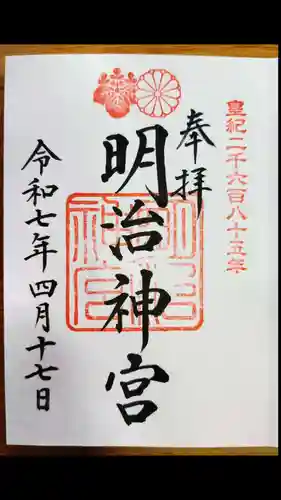 皇紀二千六百八十五年
奉拝
明治神宮
明治神宮
令和七年四月十七日